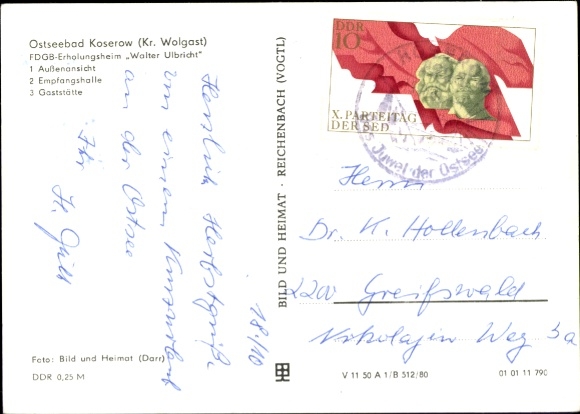 Ostseebad Koserow (Kr. Wolgast)
FDGB-Erholungsheim „Walter Ulbricht"
1 Außenansicht
2 Empfangshalle
3 Gaststätte
18./10
Herzlich Herbstgrüße
von einem Kurzurlaub
an der Ostsee
Ihr H.
Foto: Bild und Heimat (Darr)
DDR 0,25 M
BILD UND HEIMAT · REICHENBACH (VOGTL)
DDR
10
X. PARTEITAG
DER SED
Juwel der Ostsee
Herrn
Dr. K. Hollenbach
2200 Greifswald
Nikolajin Weg 3a
V 11 50 A 1/B 512/80
01 01 11 790